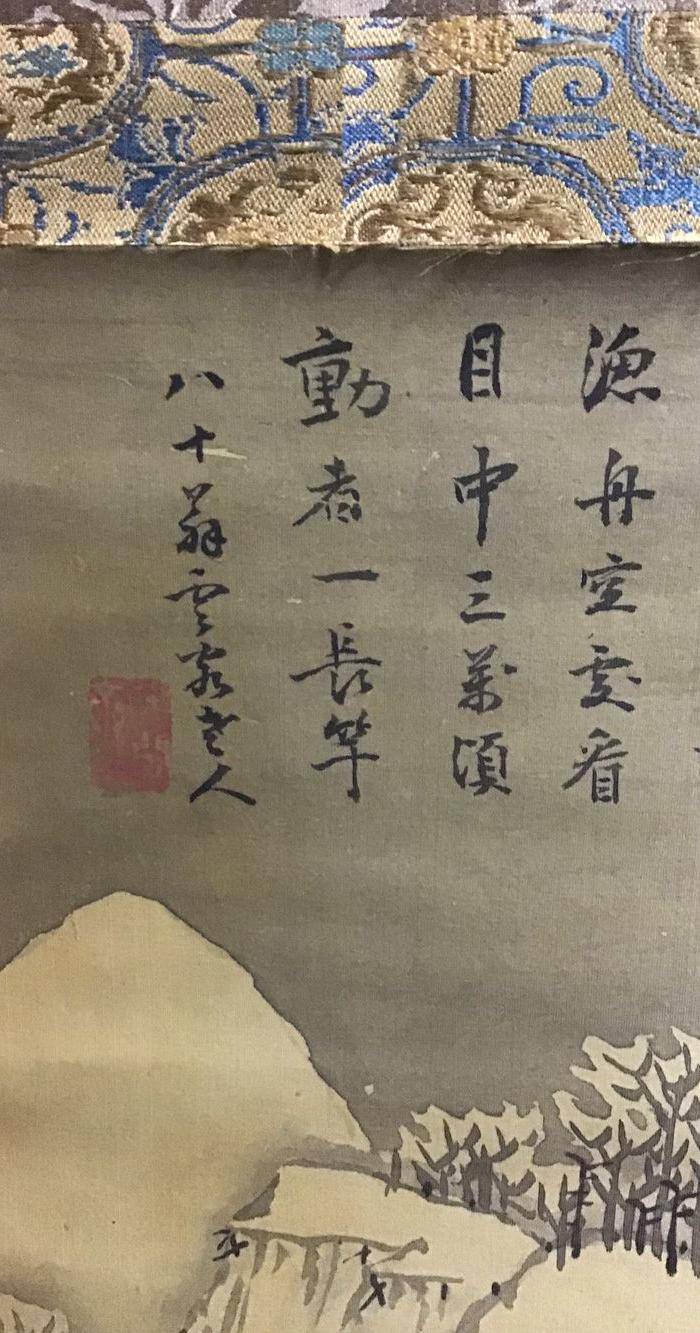 漁舟空處看
目中三萬頃
動者一長竿
八十翁雲老人